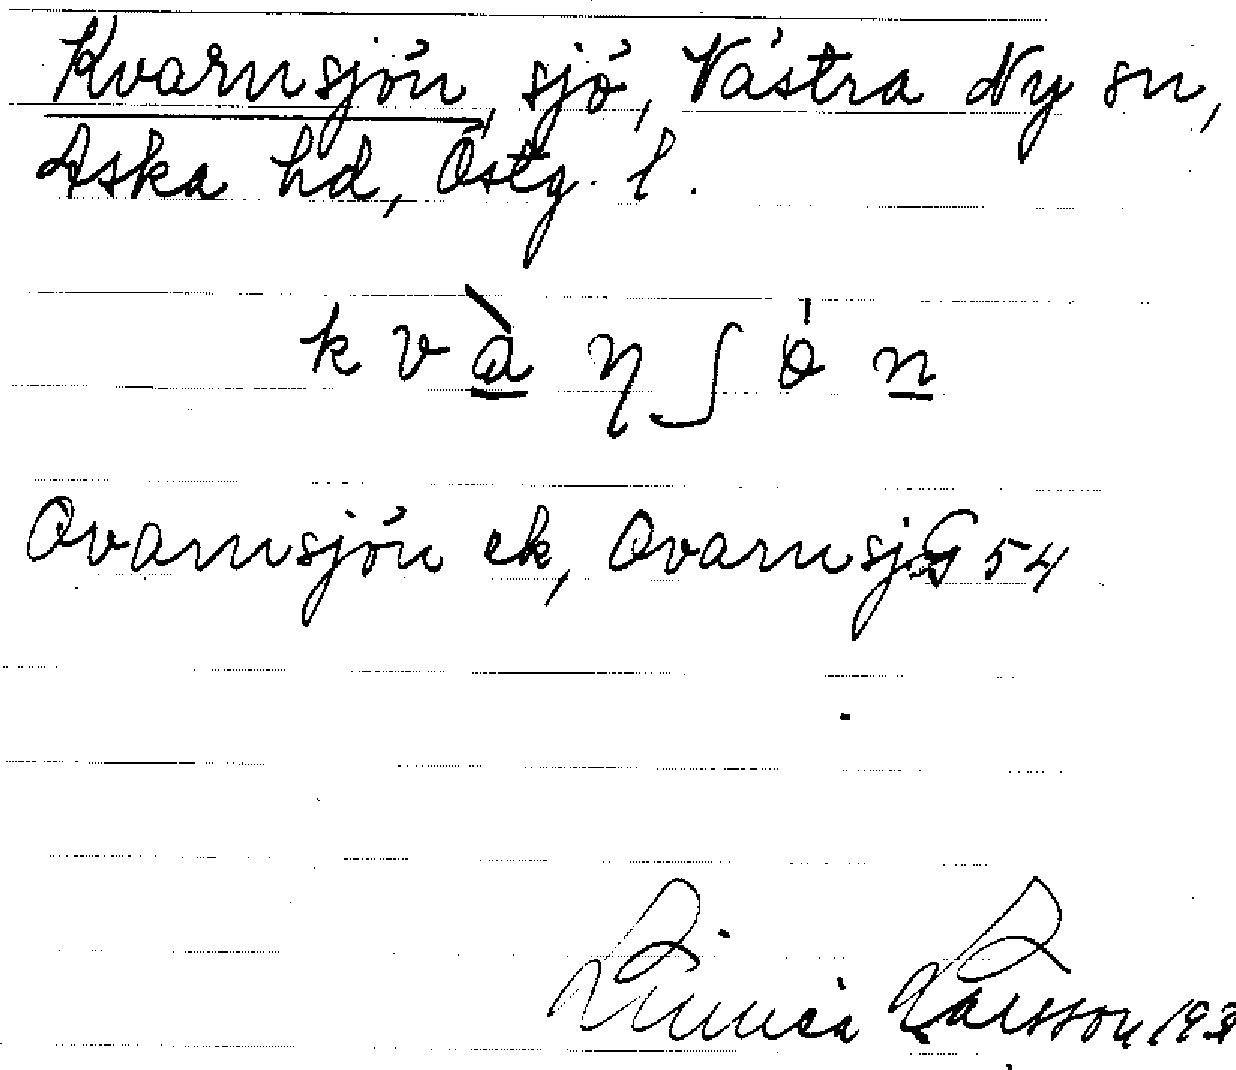 Kvarnsjön, sjö, Västra Ny sn,
Aska hd, Östg. l.
k v à ŋ ʃ ö n
Qvarnsjön ek, Qvarnsjö G 54
Linnéa Larsson 193